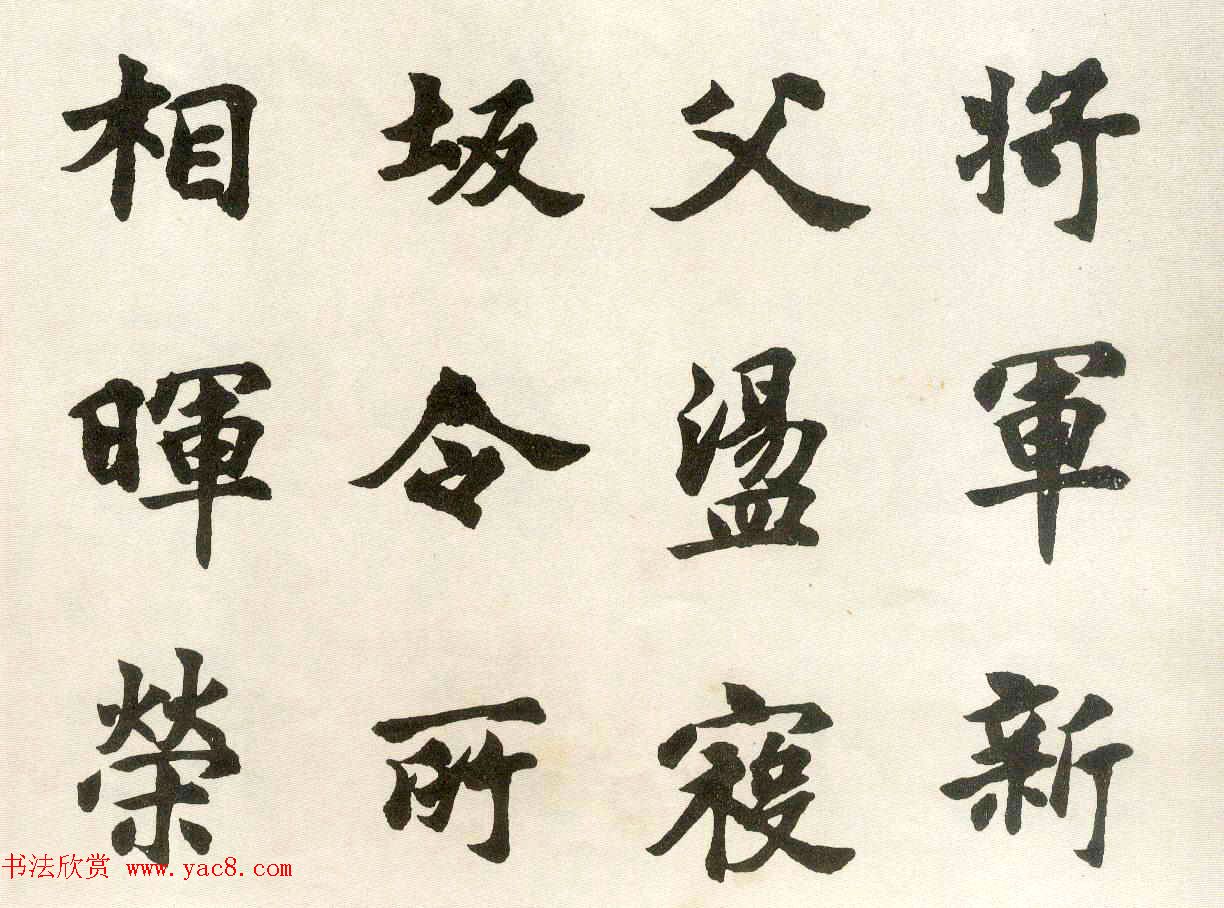 将軍新
父盪寇
坂令所
相暉榮
书法欣赏 www.yac8.com